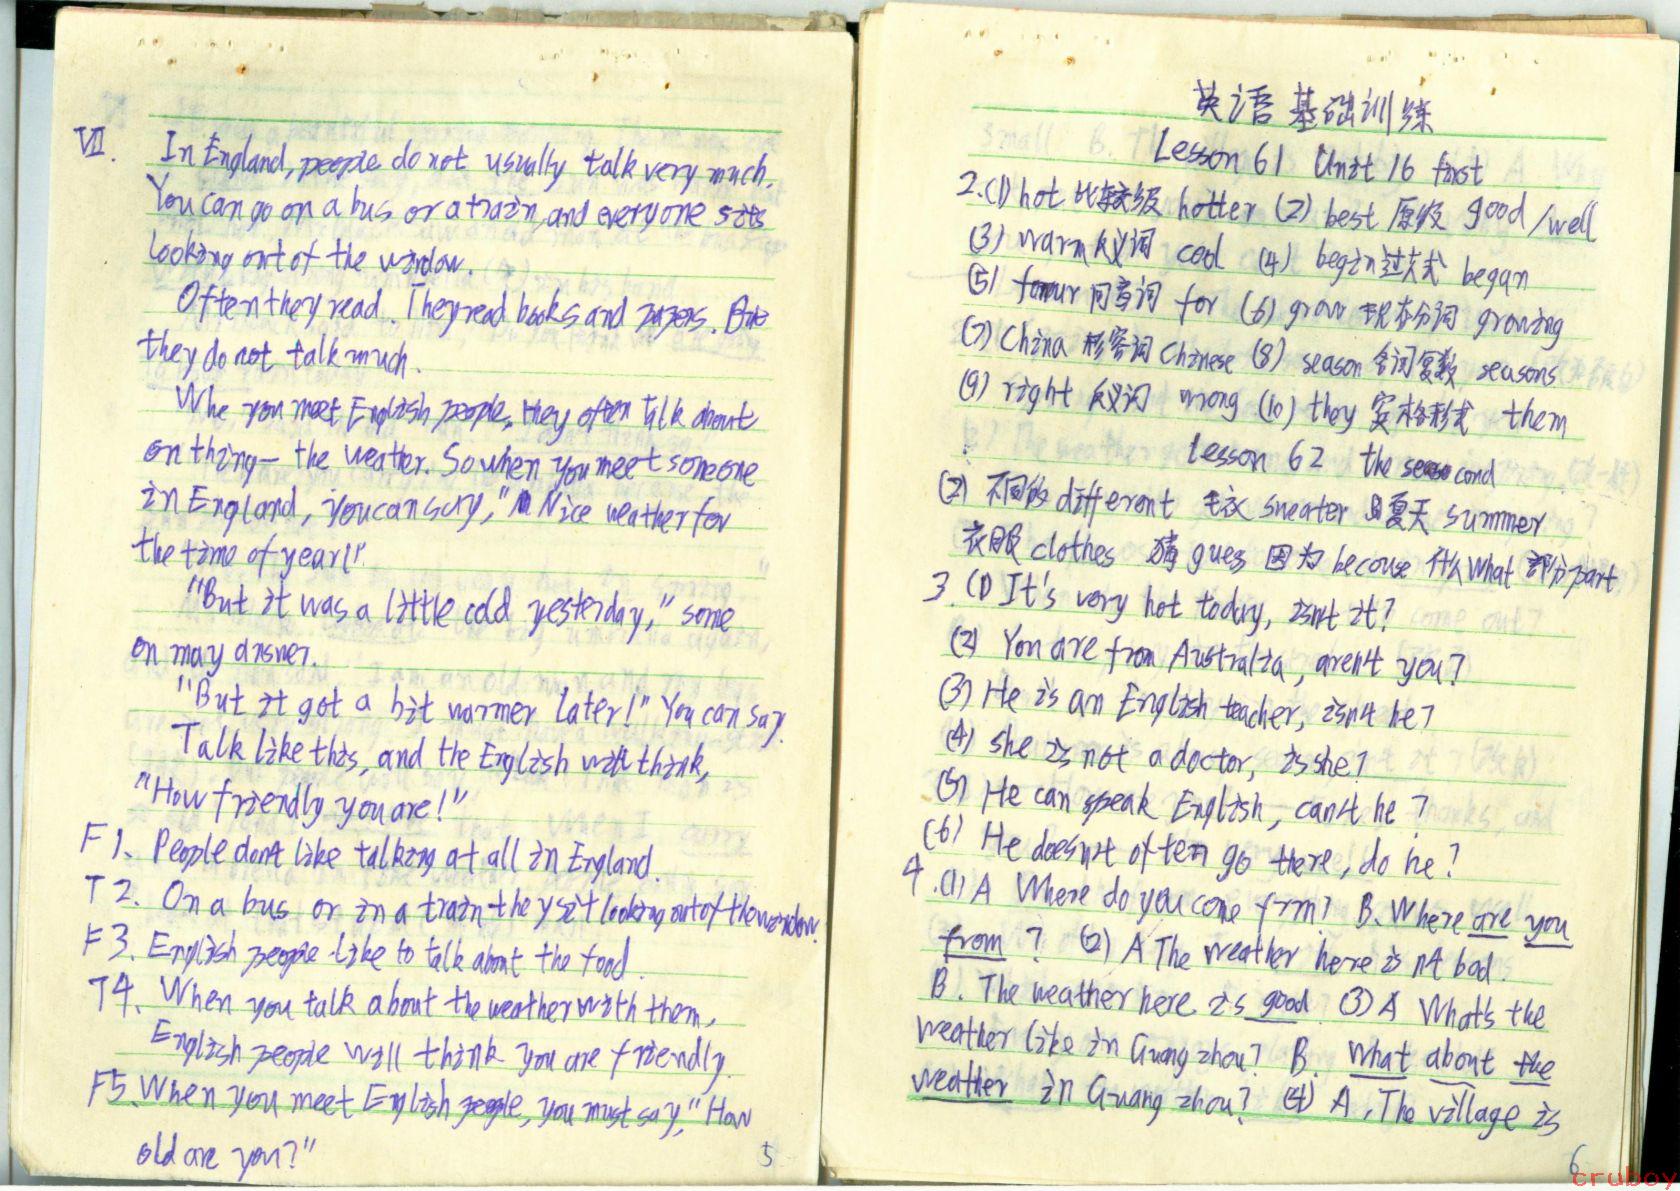 VII. In England, people do not usually talk very much.
You can go on a bus or a train, and everyone sits
looking out of the window.
Often they read. They read books and papers. But
they do not talk much.
Whe you meet English people, they often talk about
on thing— the weather. So when you meet someone
in England, you can say, "Nice weather for
the time of year!"
"But it was a little cold yesterday," some
on may answer.
"But it got a bit warmer later!" You can say.
Talk like this, and the English will think,
"How friendly you are!"
F 1. People don't like talking at all in England.
T 2. On a bus or in a train they sit looking out of the window.
F 3. English people like to talk about the food.
T 4. When you talk about the weather with them,
English people will think you are friendly.
F 5. When you meet English people, you must say, "How
old are you?"
5
英语基础训练
Lesson 61 Unit 16 first
2.(1) hot 比较级 hotter (2) best 原级 good/well
(3) warm 反义词 cool (4) begin 过去式 began
(5) four 同音词 for (6) grow 现在分词 growing
(7) China 形容词 Chinese (8) season 名词复数 seasons
(9) right 反义词 wrong (10) they 宾格形式 them
Lesson 62 the second
(2) 不同的 different 毛衣 sweater 夏天 summer
衣服 clothes 猜 gues 因为 becouse 什么 what 部分 part
3. (1) It's very hot today, isn't it?
(2) You are from Australia, aren't you?
(3) He is an English teacher, isn't he?
(4) she is not a doctor, is she?
(5) He can speak English, can't he?
(6) He doesn't often go there, do he?
4. (1) A Where do you come frm? B. Where are you
from? (2) A The weather here is n't bad.
B. The weather here is good (3) A What's the
weather like in Guang zhou? B. What about the
weather in Guang zhou? (4) A. The village is
6
cruboy